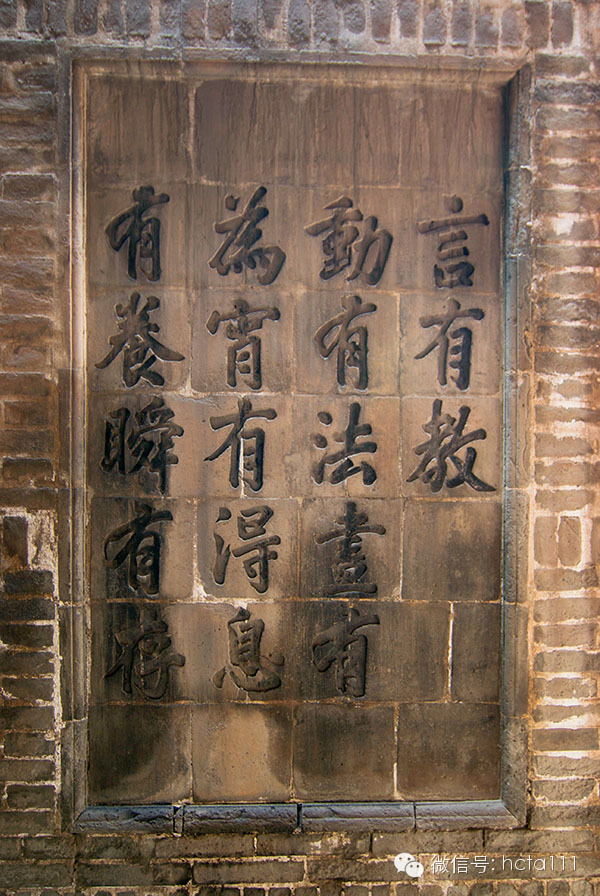 言有教
動有法晝有
為宵有得息
有養瞬有存
微信号: hcta111